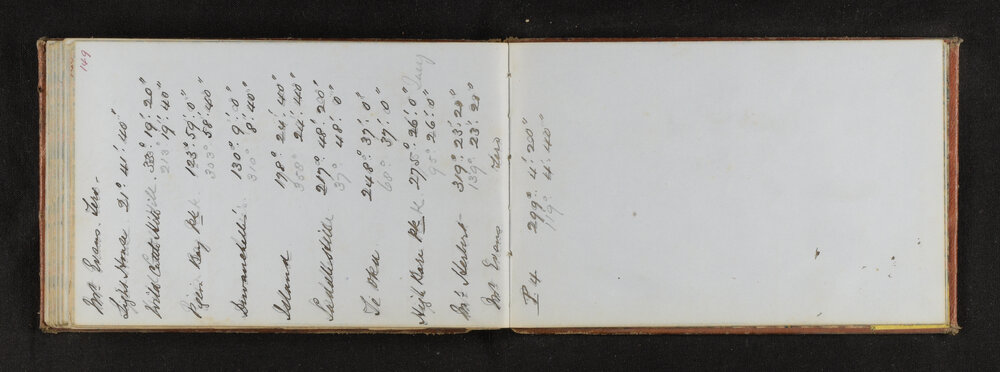 149
Mt. Evans. Zero -
Light House 21° 41' 40"
Wild Cattle Hill 33° 19' 20"
213° 19' 40"
Pigeon Bay Pk 123° 59' 0"
303° 58' 40"
130° 9' 0"
310° 8' 40"
Island 178° 24' 40"
358° 24' 40"
Saddle Hill 217° 48' 20"
37° 48' 0"
Te Oka 248° 37' 0"
68° 37' 0"
High Bare Pk 275° 26' 0"
95° 26' 0"
Mt. Herbert 319° 23' 20"
139° 23' 20"
Mt. Evans Zero
P 4 299° 4' 20"
119° 4' 40"